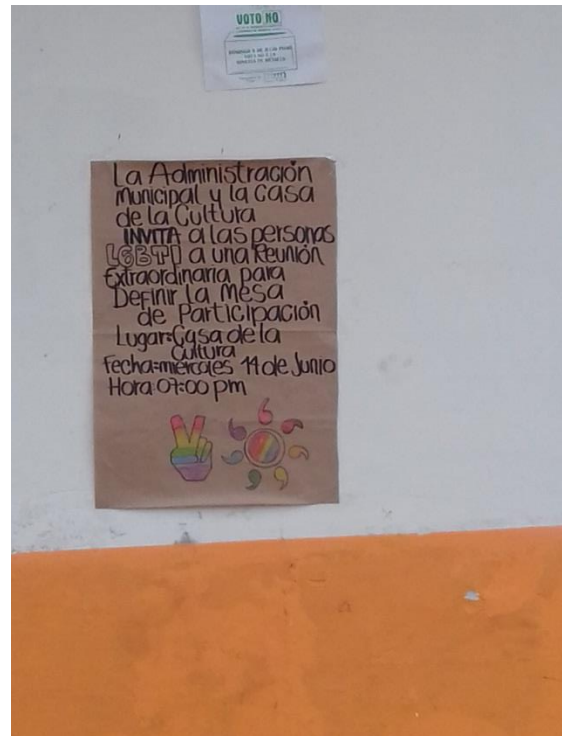 VOTO NO
La Administración
Municipal y la Casa
de la Cultura
INVITA a las personas
LGBTI a una Reunión
Extraordinaria para
Definir La Mesa
de Participación
Lugar=Casa de la
Cultura
Fecha=miércoles 14 de Junio
Hora 07:00 pm